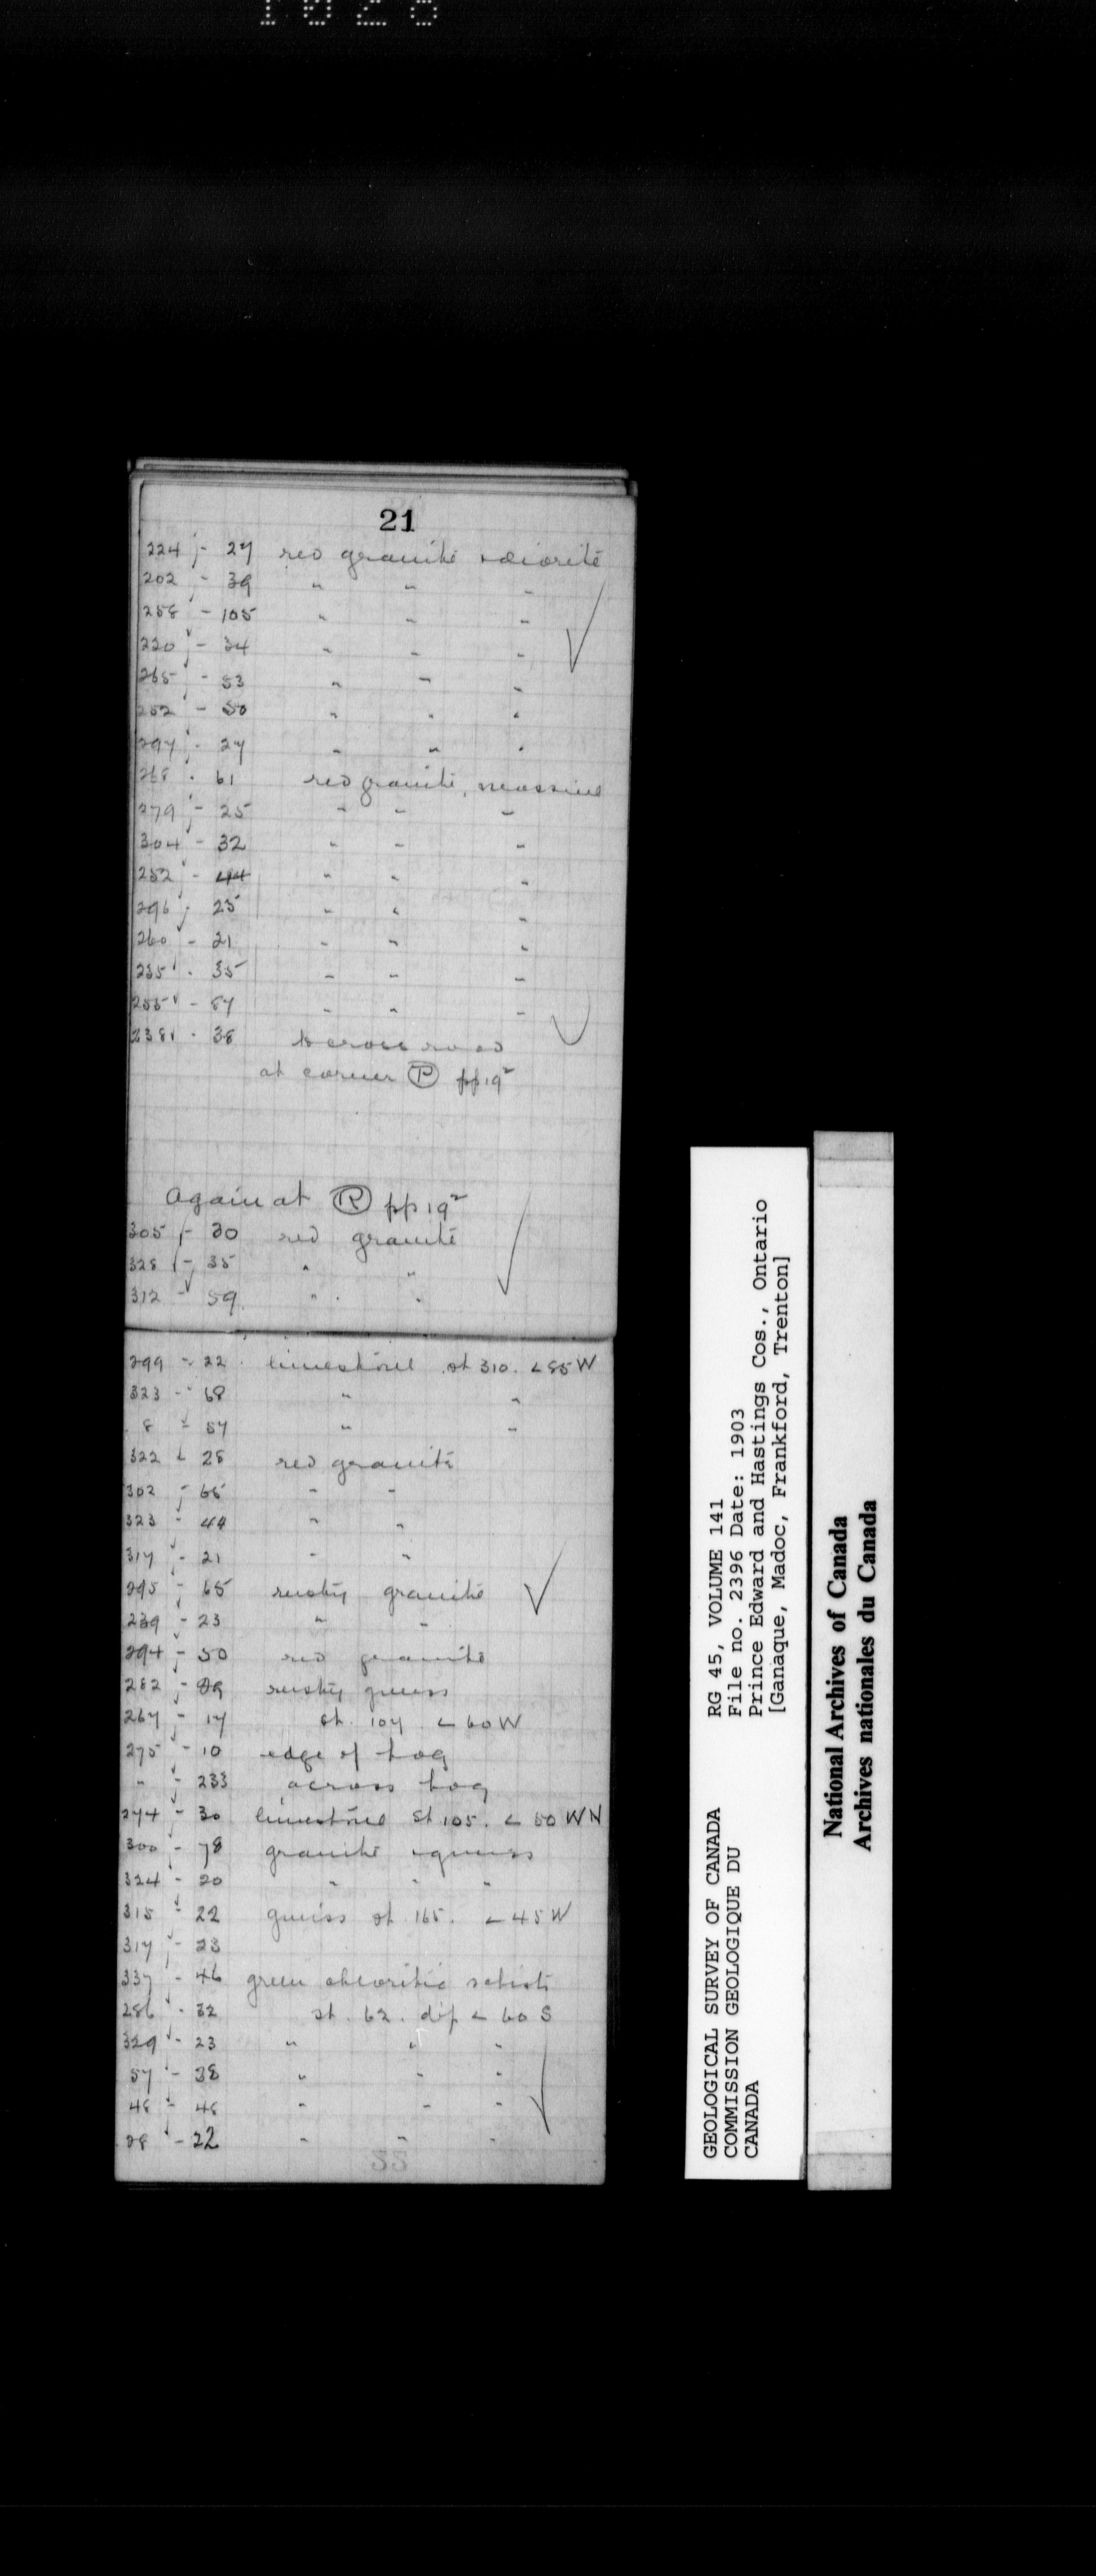 21
224 - 27 red granite + diorite
202 - 39 " " "
258 - 105 " " "
220 - 34 " " "
265 - 53 " " "
252 - 50 " " "
297 - 27 " " "
268 - 61 red granite, massive
279 - 25 " " "
304 - 32 " " "
252 - 44 " " "
296 - 25 " " "
260 - 21 " " "
235 - 35 " " "
255 - 87 " " "
238 - 38 to cross road
at corner Ⓟ pp 19²
Again at Ⓡ pp 19²
305 - 30 red granite
328 - 35 " "
312 - 59 " "
299 - 22 limestone st 310. < 85 W
323 - 68 " "
8 - 57 " "
322 - 28 red granite
302 - 65 " "
323 - 44 " "
317 - 21 " "
295 - 65 rusty granite
239 - 23 " "
294 - 50 red granite
282 - 89 rusty gneiss
267 - 17 st. 107 < 60 W
275 - 10 edge of bog
" - 233 across bog
274 - 30 limestone st 105. < 50 W N
300 - 78 granite + gneiss
324 - 20 " " "
315 - 22 gneiss st 165. < 45 W
317 - 23
337 - 46 green chloritic schist
286 - 32 st. 62. dip < 60 S
329 - 23 " " "
57 - 38 " " "
48 - 48 " " "
28 - 22 " " "
GEOLOGICAL SURVEY OF CANADA
COMMISSION GEOLOGIQUE DU
CANADA
RG 45, VOLUME 141
File no. 2396 Date: 1903
Prince Edward and Hastings Cos., Ontario
[Ganaque, Madoc, Frankford, Trenton]
National Archives of Canada
Archives nationales du Canada